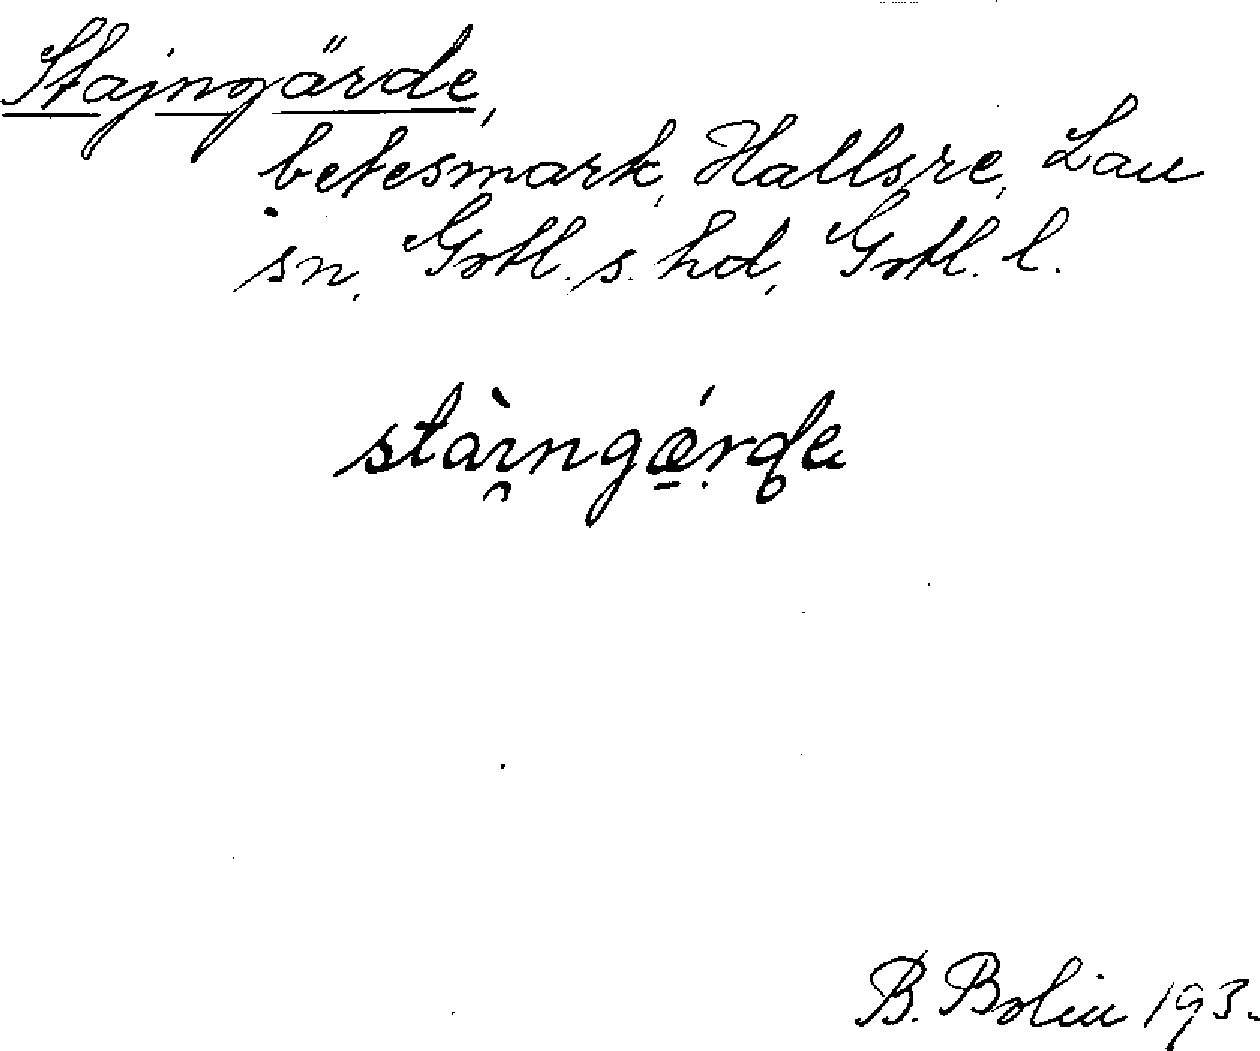 Stajngärde,
betesmark, Hallsre, Lau
sn, Gotl. s. hd, Gotl. l.
stàɪ̯ngǽrde
B. Bolin 193